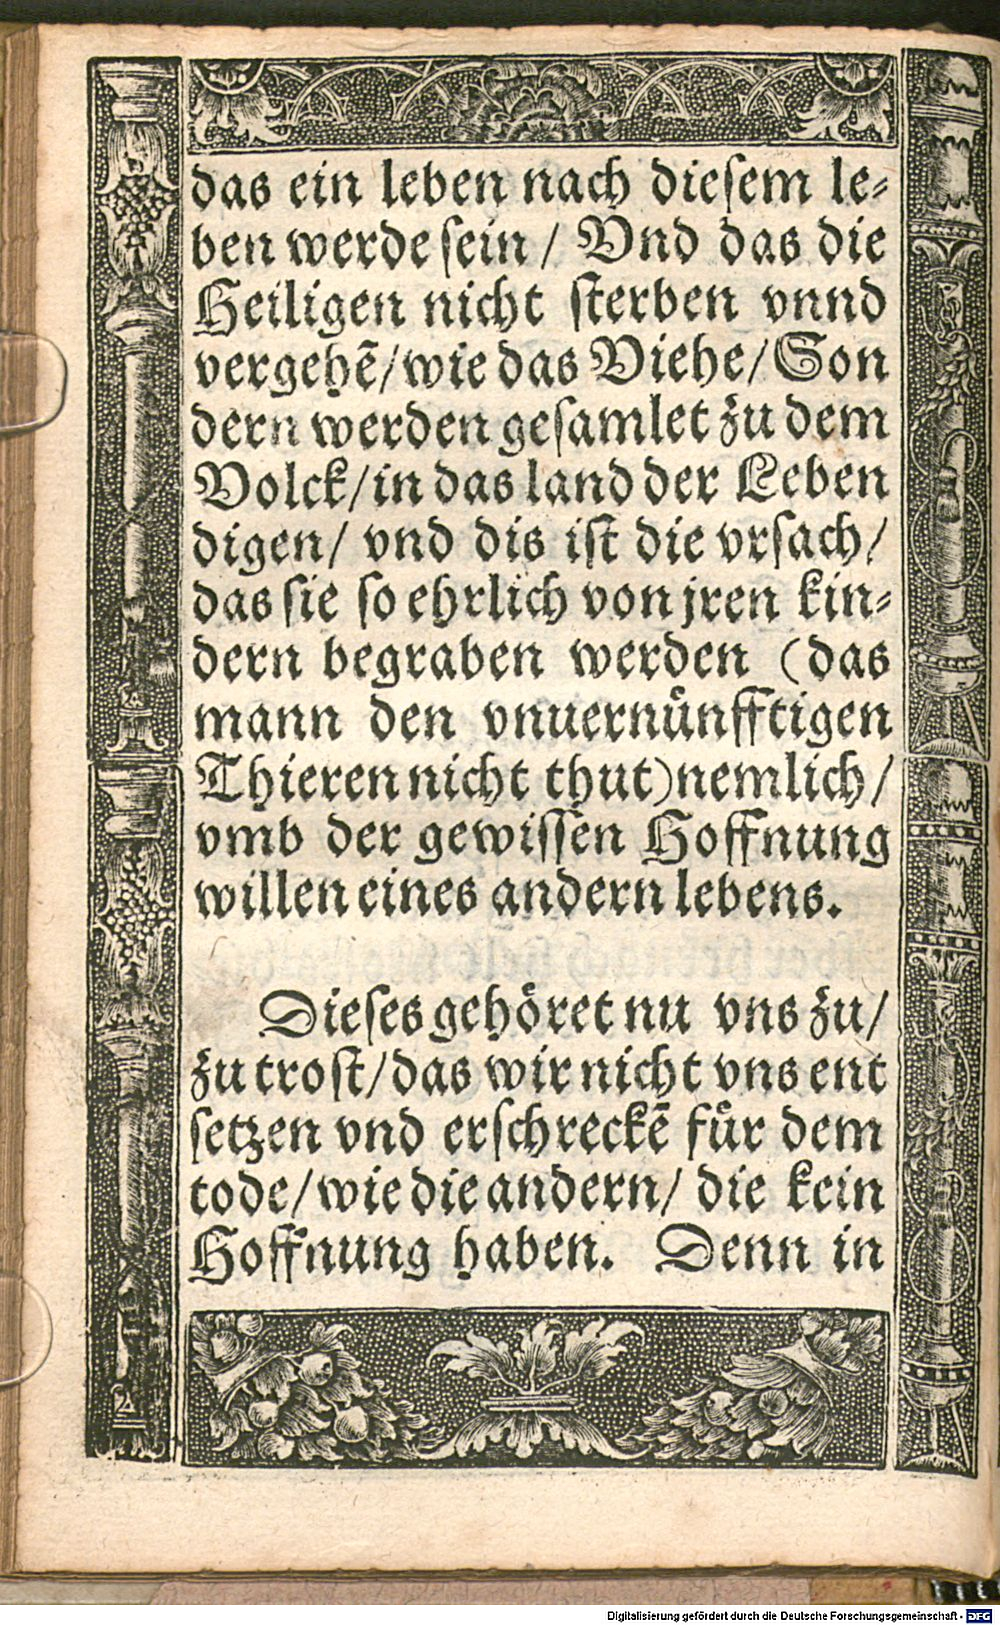 das ein leben nach diesem le⸗
ben werde sein / Vnd das die
Heiligen nicht sterben vnnd
vergehẽ/wie das Viehe/Son
dern werden gesamlet zu dem
Volck/in das land der Leben
digen/ vnd dis ist die vrsach/
das sie so ehrlich von jren kin⸗
dern begraben werden (das
mann den vnuernünfftigen
Thieren nicht thut)nemlich/
vmb der gewissen Hoffnung
willen eines andern lebens.
Dieses gehöret nu vns zu/
zu trost/das wir nicht vns ent
setzen vnd erschreckẽ für dem
tode/wie die andern/ die kein
Hoffnung haben. Denn in
Digitalisierung gefördert durch die Deutsche Forschungsgemeinschaft - DFG